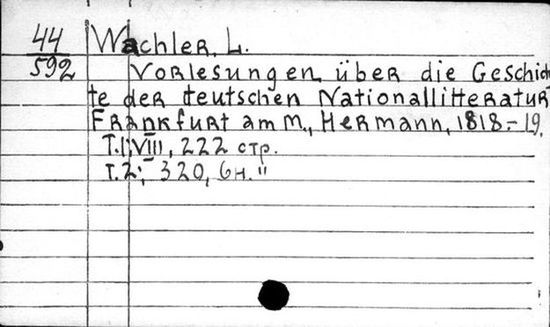 44 Wachler, L.
592 Vorlesungen über die Geschich
te der teutschen Nationallitteratur
Frankfurt am M., Hermann, 1818.-19.
T.1; VIII, 222 стр.
T.2; 320, 6н."